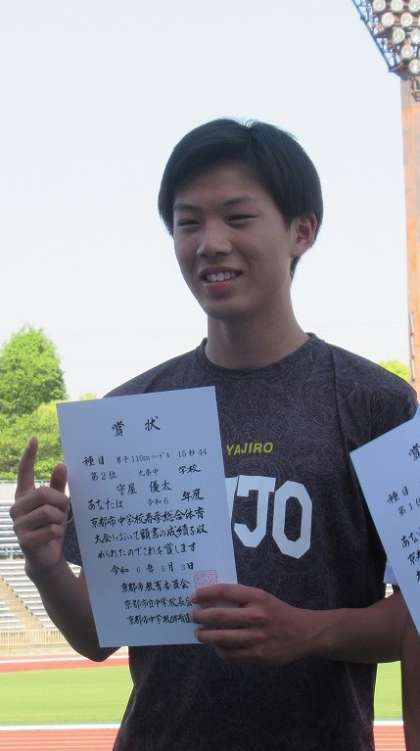 賞状
種目 男子110mハードル 15秒44
第2位 九条中 学校
守屋 優太
あなたは 令和6 年度
京都市中学校春季総合体育
大会において頭書の成績を収
められたのでこれを賞します
令和 6年5月3日
京都市教育委員会
京都市立中学校長会
京都市中学校体育連
YAJIRO
UJO
賞
種目
第1
あなた
京都市
大会
められ